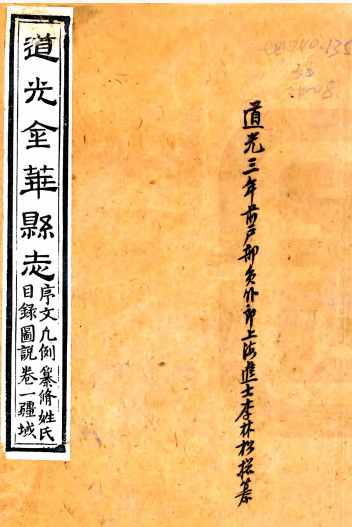 道光金華縣志
序文凡例纂脩姓氏
目錄圖說卷一疆域
道光三年前戶部員外郎上海進士李林松撰纂